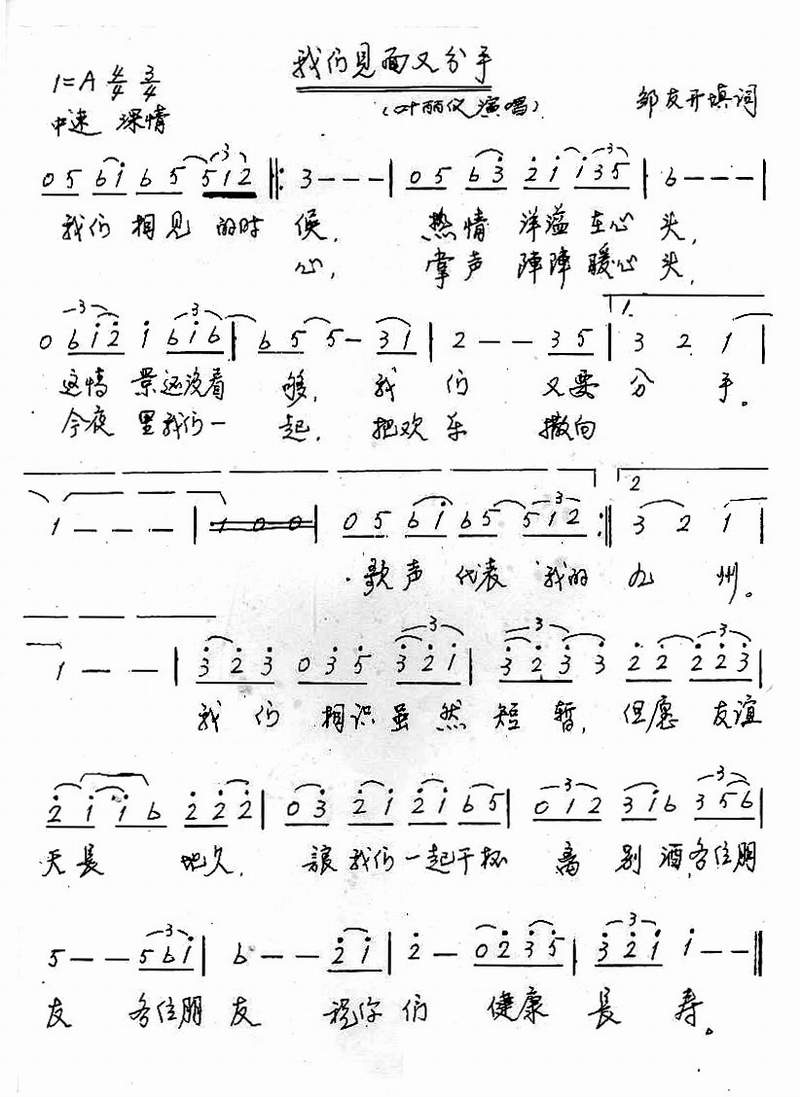 我们见面又分手
1=A 4/4 3/4
(叶丽仪演唱)
邹友开填词
中速 深情
0 5 6 i 6 5 5 1 2 ‖: 3 - - - | 0 5 6 3 2 i i 3 5 | 6 - - - |
我们 相见 的时 候, 热情 洋溢 在心 头,
心, 掌声 陣陣 暖心 头,
0 6 i 2 i 6 i 6 | 6 5 5 5 - 3 1 | 2 - - 3 5 | 1. 3 2 1 |
这情 景还没看 够, 我 们 又要 分 手。
今夜 里我们一 起, 把欢 乐 撒向
1 - - - | 1 0 0 | 0 5 6 i 6 5 5 1 2 :‖ 2 3 2 1 |
歌声 代表 我的 九 州。
1 - - | 3 2 3 0 3 5 3 2 i | 3 2 3 3 2 2 2 2 3 |
我 们 相识 虽 然 短 暂, 但愿 友谊
2 i i 6 2 2 2 | 0 3 2 i 2 i 6 5 | 0 1 2 3 i 6 3 5 6 |
天長 地久, 讓 我们 一起干杯 离 别 酒,各位朋
5 - - 5 6 i | 6 - - 2 i | 2 - 0 2 3 5 | 3 2 i i - - ‖
友 各位朋 友 祝你 们 健康 長 寿。